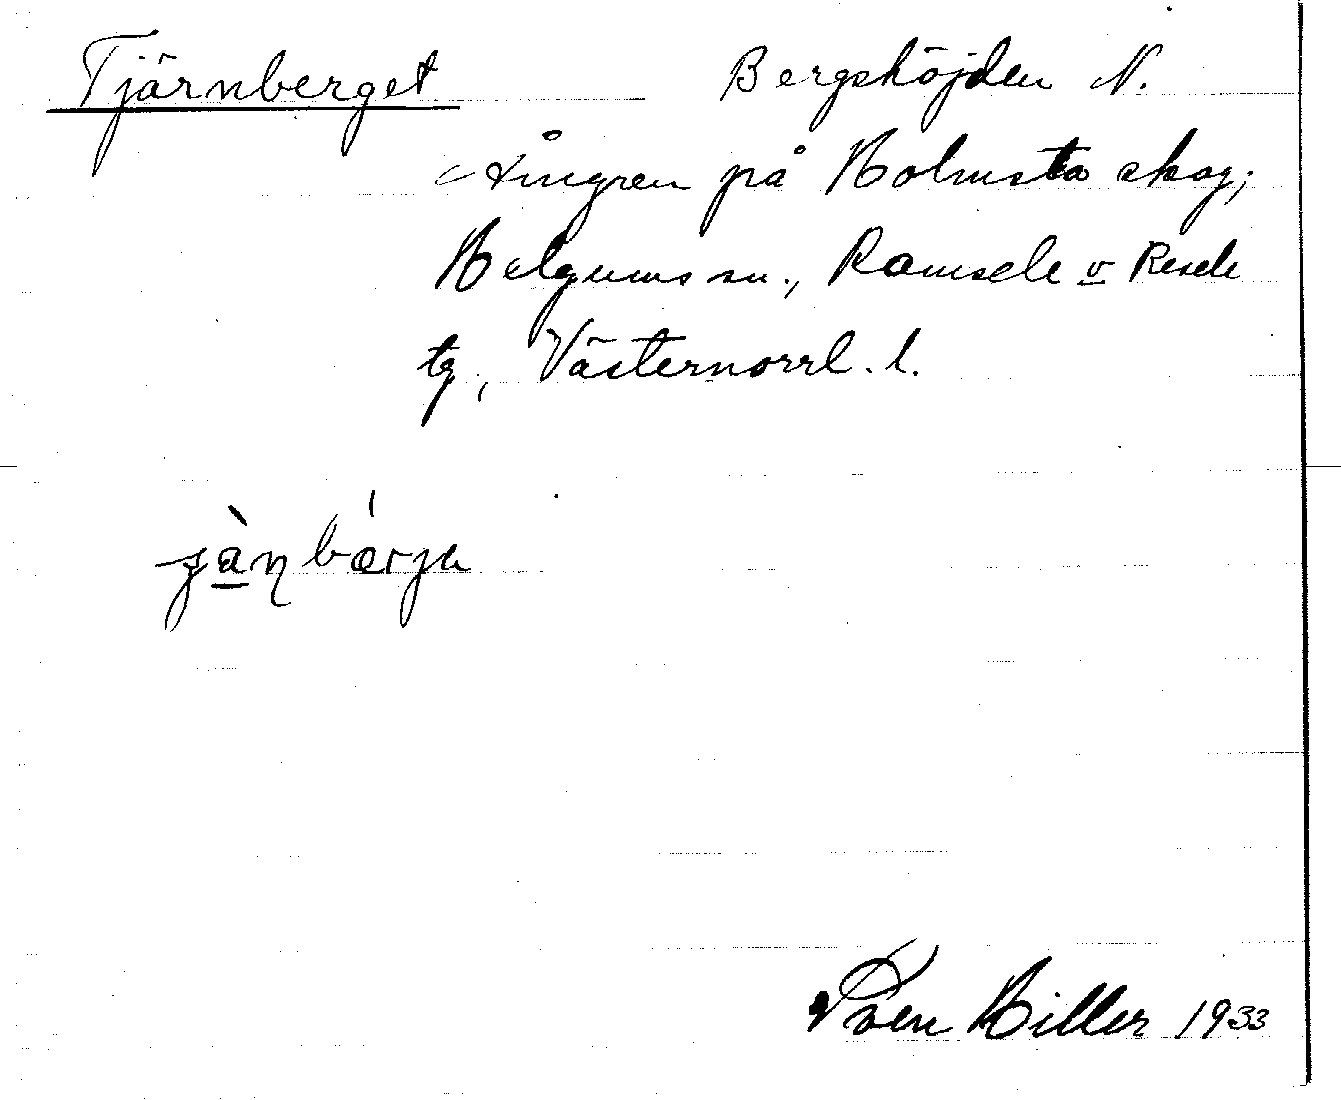 Tjärnberget Bergshöjden N.
Ångren på Holmsta skog;
Helgums sn., Ramsele o Resele
tg, Västernorrl. l.
Sven Hiller 1933